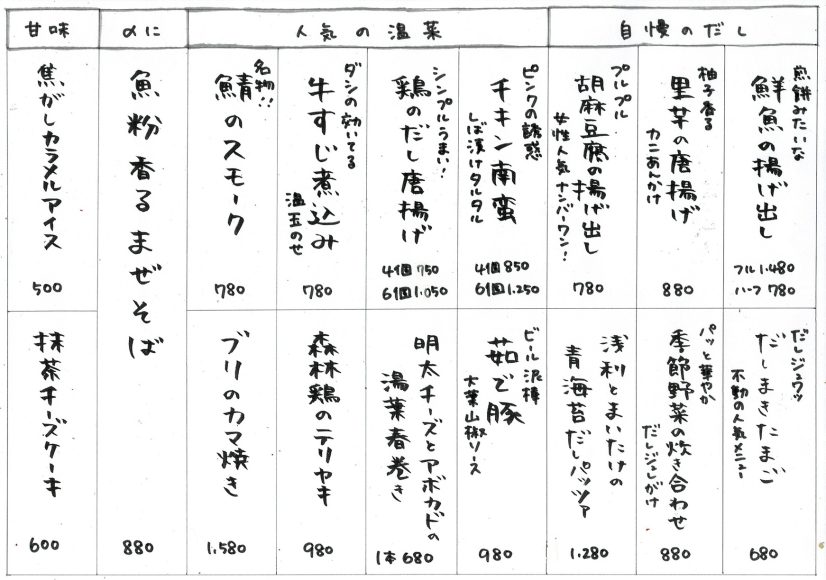 自慢のだし
煎餅みたいな
鮮魚の揚げ出し
フル 1.480
ハーフ 780
柚子香る
里芋の唐揚げ
カニあんかけ
880
プルプル
胡麻豆腐の揚げ出し
女性人気ナンバーワン!
780
だしジュワッ
だしまきたまご
不動の人気メニュー
680
パッと華やか
季節野菜の炊き合わせ
だしジュレがけ
880
浅利とまいたけの
青海苔だしパッツァ
1.280
人気の温菜
ピンクの誘惑
チキン南蛮
しば漬けタルタル
4個 850
6個 1.250
シンプルうまい!
鶏のだし唐揚げ
4個 750
6個 1.050
ダシの効いてる
牛すじ煮込み
温玉のせ
780
名物!!
鯖のスモーク
780
ビール泥棒
茹で豚
大葉山椒ソース
980
明太チーズとアボカドの
湯葉春巻き
1本 680
森林鶏のテリヤキ
980
ブリのカマ焼き
1.580
〆に
魚粉香るまぜそば
880
甘味
焦がしカラメルアイス
500
抹茶チーズケーキ
600